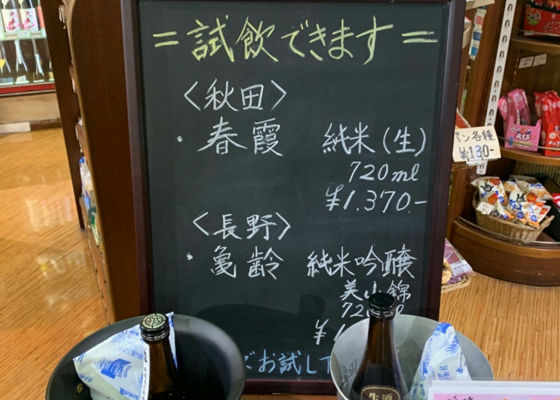 =試飲できます=
〈秋田〉
・春霞 純米(生)
720ml
¥1.370.-
〈長野〉
・亀齢 純米吟醸
美山錦
お試し
パン各種
¥130-
生酒